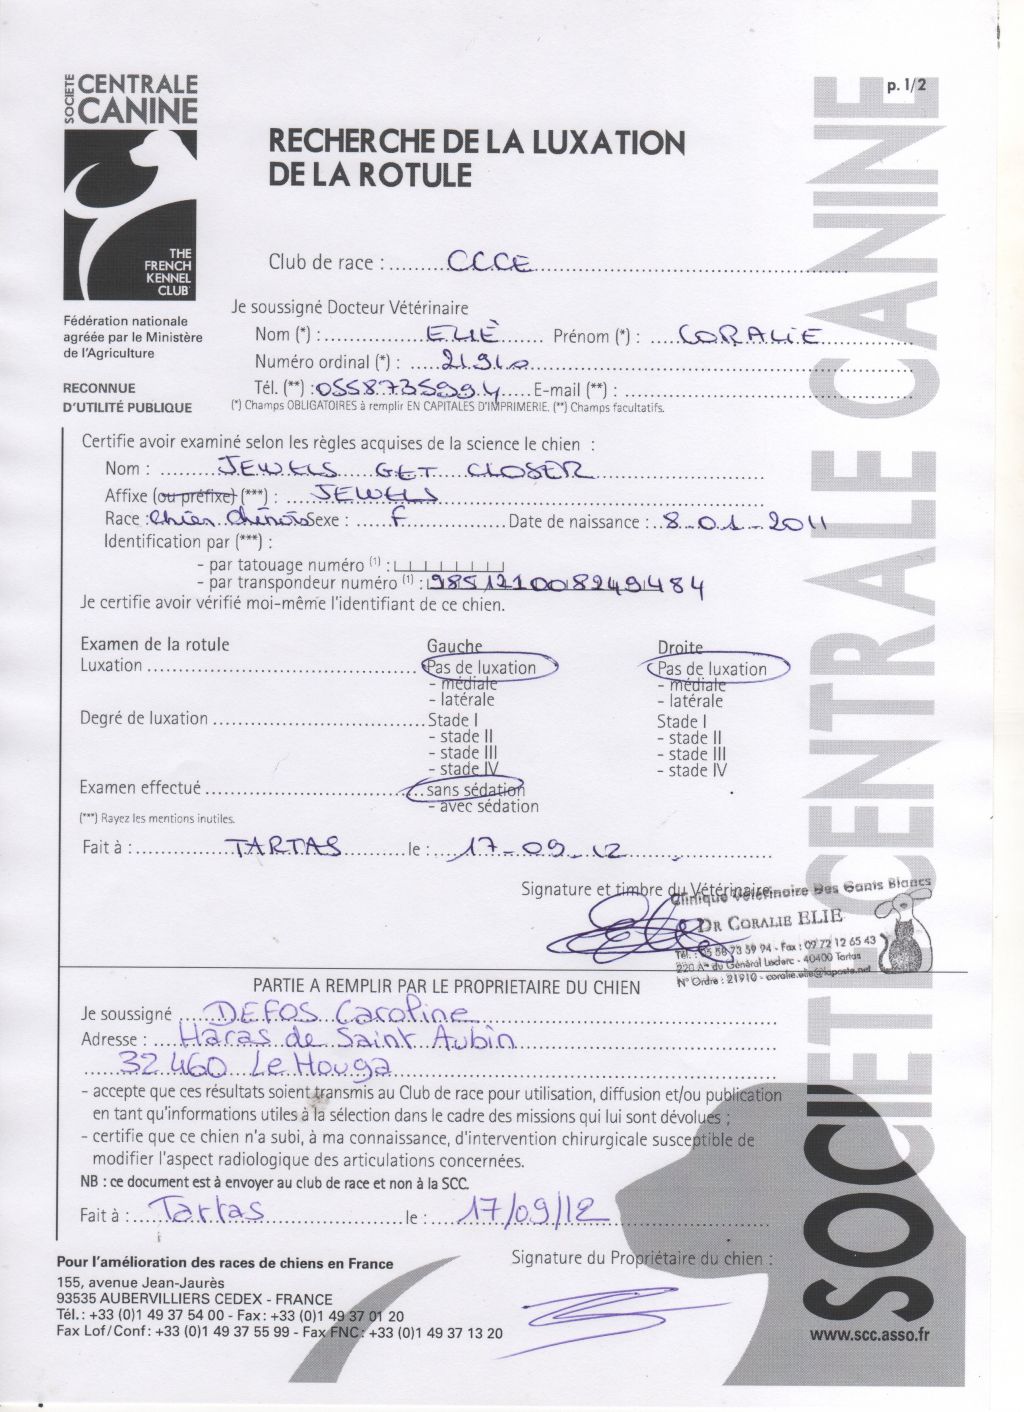 p. 1/2
SOCIETE CENTRALE CANINE
THE FRENCH KENNEL CLUB
Fédération nationale
agréée par le Ministère
de l'Agriculture
RECONNUE
D'UTILITÉ PUBLIQUE
RECHERCHE DE LA LUXATION
DE LA ROTULE
Club de race : CCCE
Je soussigné Docteur Vétérinaire
Nom (*) : ELIÈ Prénom (*) : CORALIE
Numéro ordinal (*) : 21910
Tél. (**) : 0558735994 E-mail (**) :
(*) Champs OBLIGATOIRES à remplir EN CAPITALES D'IMPRIMERIE. (**) Champs facultatifs.
Certifie avoir examiné selon les règles acquises de la science le chien :
Nom : JEWELS GET CLOSER
Affixe (ou préfixe) (***) : JEWELS
Race : Chien Chinois Sexe : F Date de naissance : 8-01-2011
Identification par (***) :
- par tatouage numéro (1) :
- par transpondeur numéro (1) : 985121008249484
Je certifie avoir vérifié moi-même l'identifiant de ce chien.
Examen de la rotule Gauche Droite
Luxation Pas de luxation Pas de luxation
- médiale - médiale
- latérale - latérale
Degré de luxation Stade I Stade I
- stade II - stade II
- stade III - stade III
- stade IV - stade IV
Examen effectué sans sédation
- avec sédation
(***) Rayez les mentions inutiles.
Fait à : TARTAS le : 17-09-12
Signature et timbre du Vétérinaire
Clinique Vétérinaire Des Gants Blancs
DR CORALIE ELIE
Tél. : 05 58 73 59 94 - Fax : 09 72 12 65 43
220 Av du Général Leclerc - 40400 Tartas
N° Ordre : 21910 - coralie.elie@laposte.net
PARTIE A REMPLIR PAR LE PROPRIETAIRE DU CHIEN
Je soussigné DEFOS Caroline
Adresse : Haras de Saint Aubin
32460 Le Houga
- accepte que ces résultats soient transmis au Club de race pour utilisation, diffusion et/ou publication
en tant qu'informations utiles à la sélection dans le cadre des missions qui lui sont dévolues ;
- certifie que ce chien n'a subi, à ma connaissance, d'intervention chirurgicale susceptible de
modifier l'aspect radiologique des articulations concernées.
NB : ce document est à envoyer au club de race et non à la SCC.
Fait à : Tartas le : 17/09/12
Signature du Propriétaire du chien :
Pour l'amélioration des races de chiens en France
155, avenue Jean-Jaurès
93535 AUBERVILLIERS CEDEX - FRANCE
Tél. : +33 (0)1 49 37 54 00 - Fax : +33 (0)1 49 37 01 20
Fax Lof/Conf : +33 (0)1 49 37 55 99 - Fax FNC : +33 (0)1 49 37 13 20
www.scc.asso.fr
SOCIETE CENTRALE CANINE